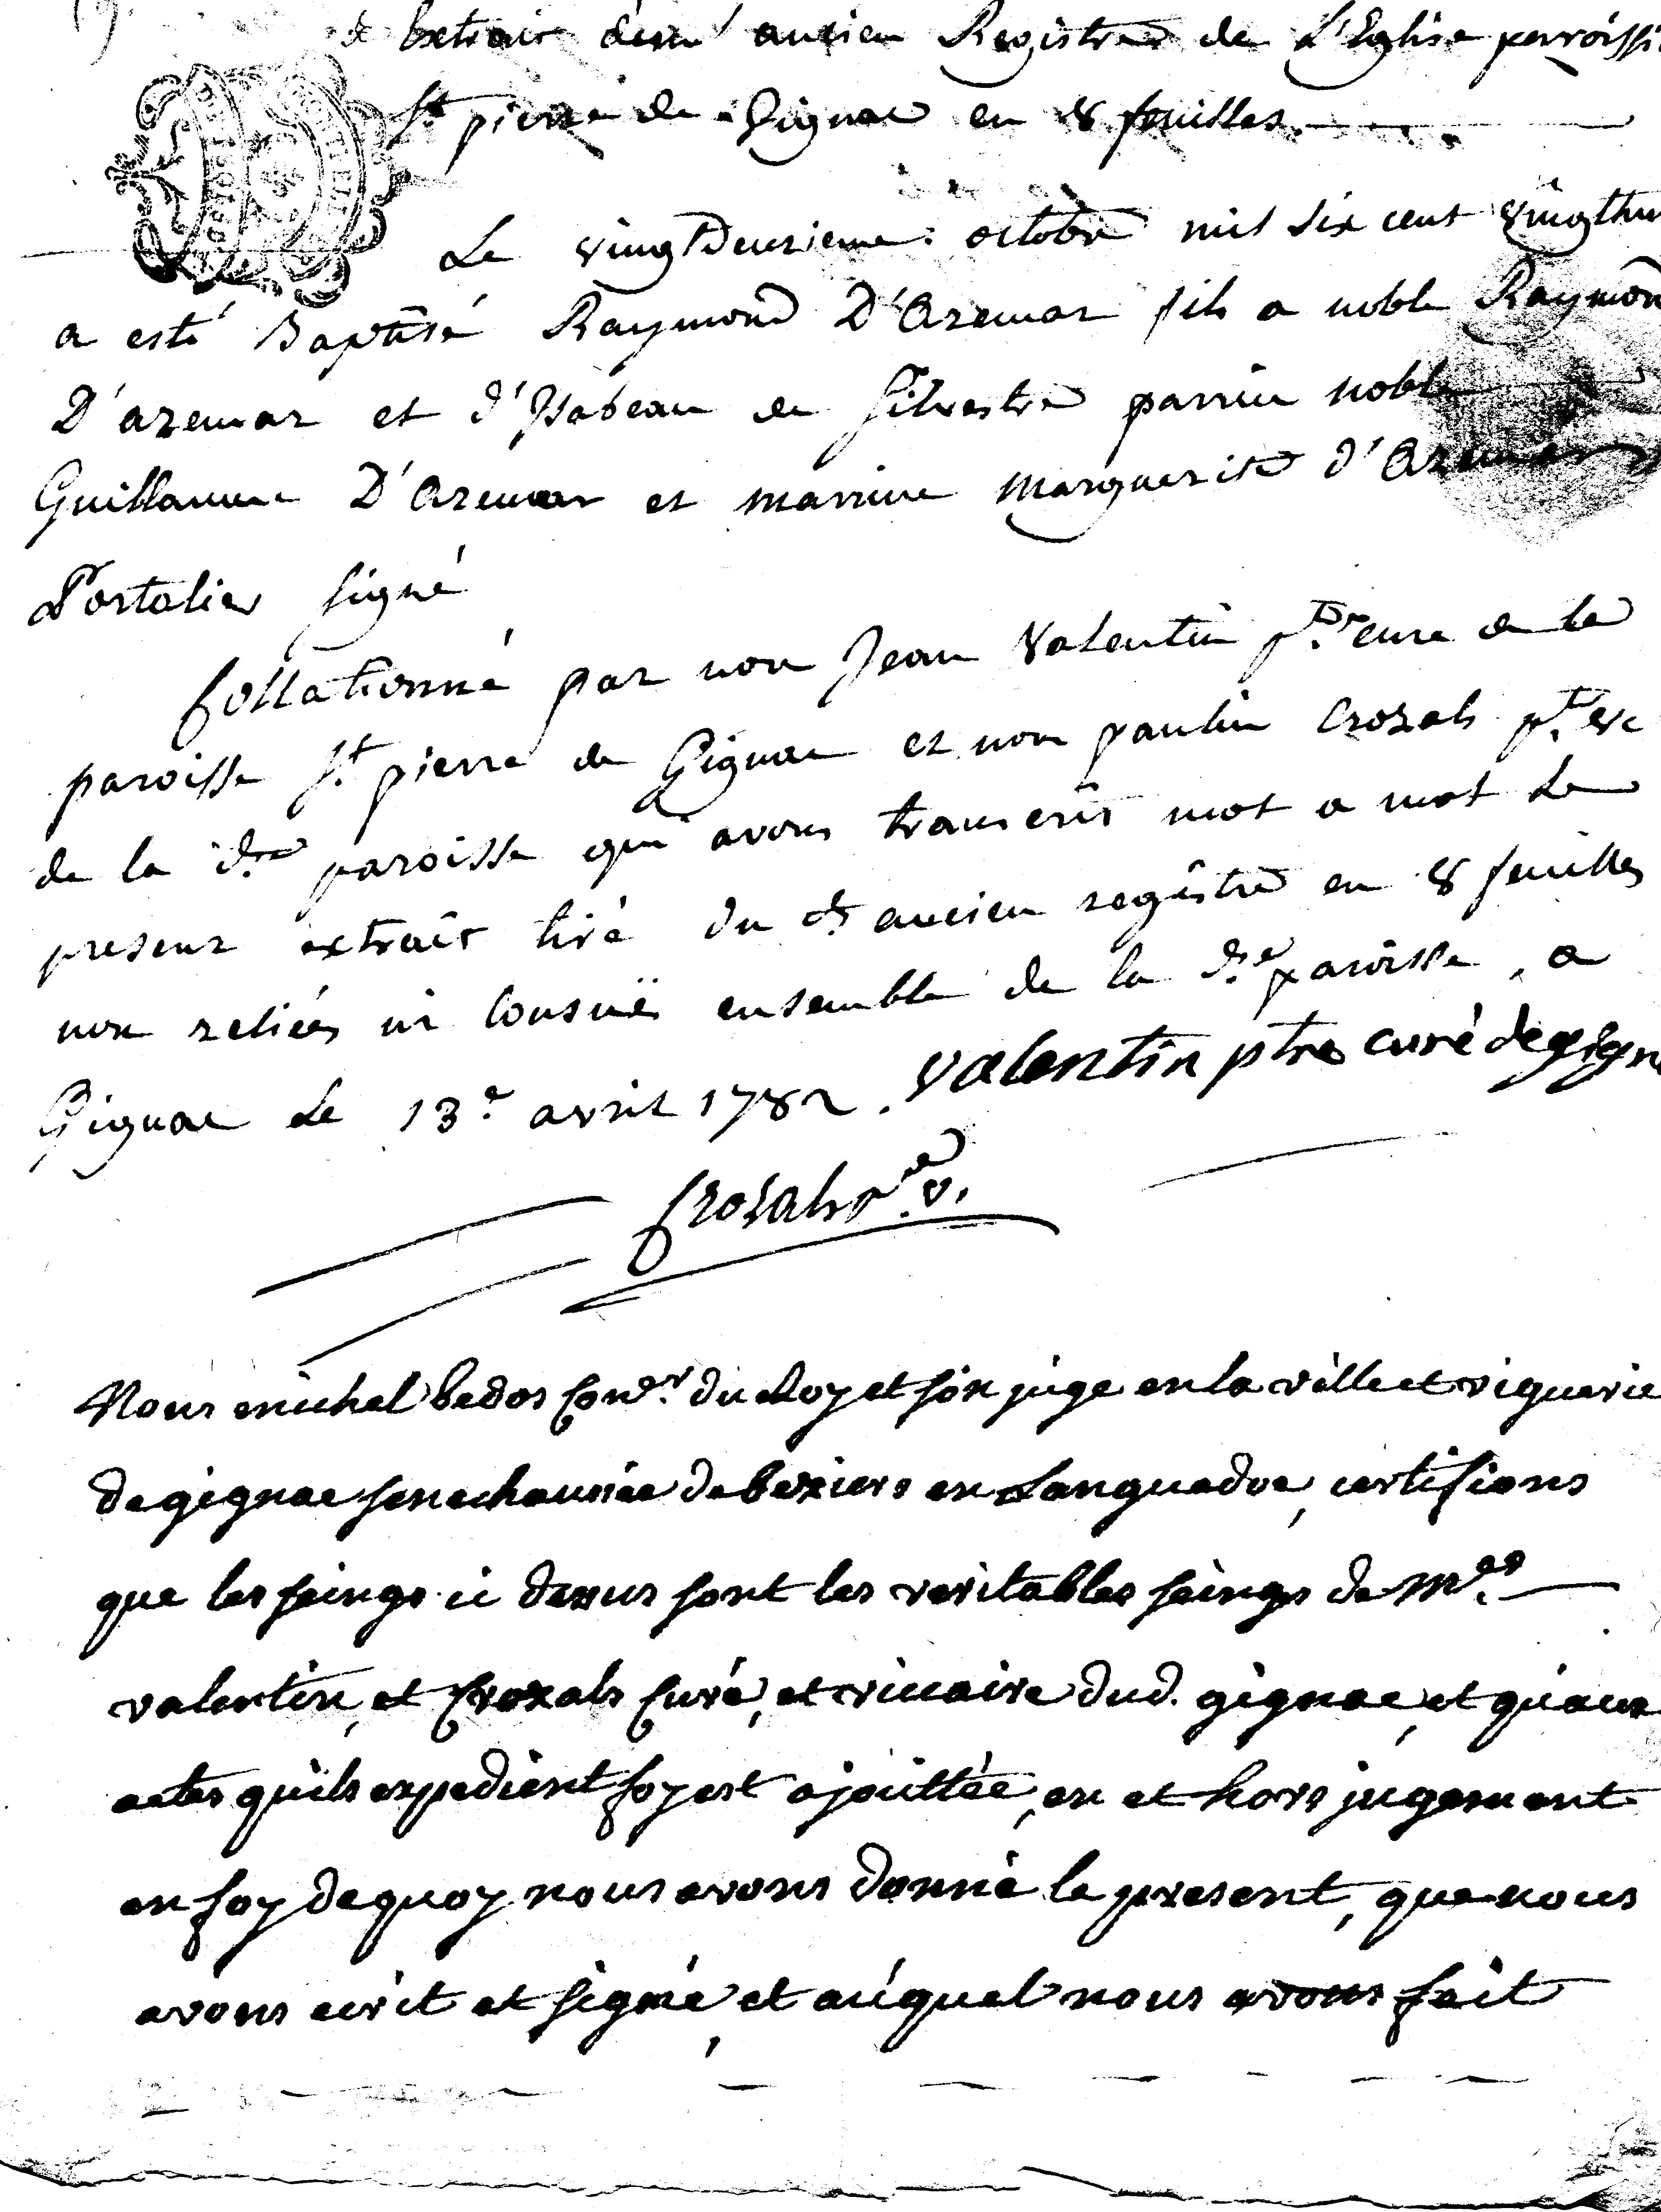 Extrait d'un ancien Registre de L'Eglise parroissi
St pierre de Gignac en 8 feuilles.
Le vingtDeuxieme octobre mil six cent vingthu
a esté Baptisé Raymond D'Azemar fils a noble Raymon
D'azemar et d'Isabeau de Silvestre parrin noble
Guillaume D'Azemar et marrine marguerite d'Azemar
Portalier signé
Collationné par nou Jean Valentin ptre cure de la
paroisse St pierre de Gignac et nou paulin Crozals ptre vc
de la dte paroisse qui avons transcrit mot a mot Le
present extrait tiré du dt ancien registre en 8 feuilles
non reliées ni Cousuës ensemble de la dte paroisse, a
Gignac Le 13e avril 1782. Valentin ptre curé de gign
Crozals p.re v.
Nous michel bedos Conser. du Roy et son juge en la ville et viguerie
de gignac senechaussée de beziers en Languedoc, certifions
que les seings ci dessus sont les veritables seings de mes
valentin, et Crozals Curé, et vicaire dud. gignac, et qu'aux
actes qu'ils expedient foy est ajouttée, en et hors jugement
en foy de quoy nous avons donné le present, que nous
avons ecrit et signé, et auquel nous avons fait